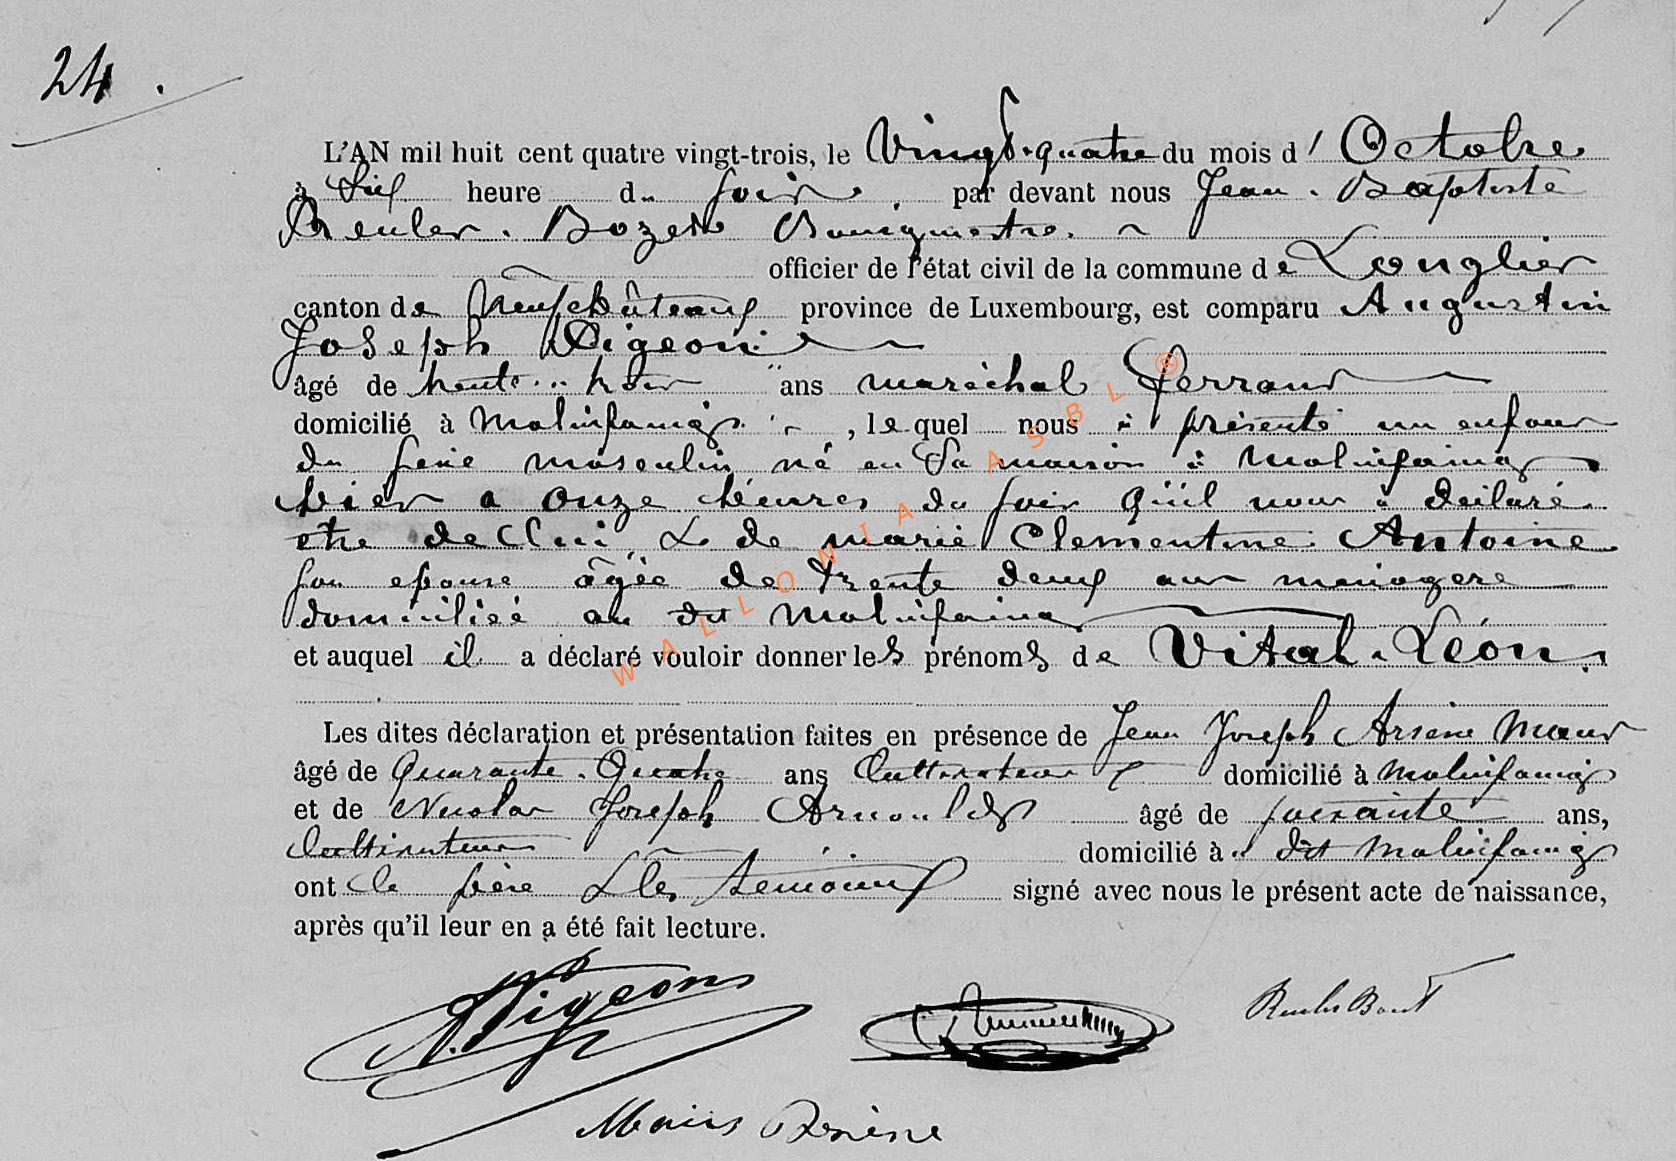 24.
L'AN mil huit cent quatre vingt-trois, le Vingt-quatre du mois d'Octobre
à Six heure du soir par devant nous Jean-Baptiste
Reuler-Bozet Bourgmestre
officier de l'état civil de la commune de Longlier
canton de Neufchâteaux province de Luxembourg, est comparu Augustin
Joseph Pigeon
âgé de trente-trois ans maréchal ferrant
domicilié à Molinfaing, lequel nous a présenté un enfant
du sexe masculin né en sa maison à Molinfaing
hier a onze heures du soir qu'il nous a déclaré
etre de lui & de marie Clementine Antoine
son epouse âgée de trente deux ans menagere
domiciliée au dit Molinfaing
et auquel il a déclaré vouloir donner les prénoms de Vital-Léon.
Les dites déclaration et présentation faites en présence de Jean Joseph Arsène
âgé de Quarante-Quatre ans Cultivateur domicilié à Molinfaing
et de Nicolas Joseph Arnould âgé de soixante ans,
Cultivateur domicilié à dit Molinfaing
ont le père & les témoins signé avec nous le présent acte de naissance,
après qu'il leur en a été fait lecture.
A. Pigeon
WALLONIA ASBL ®